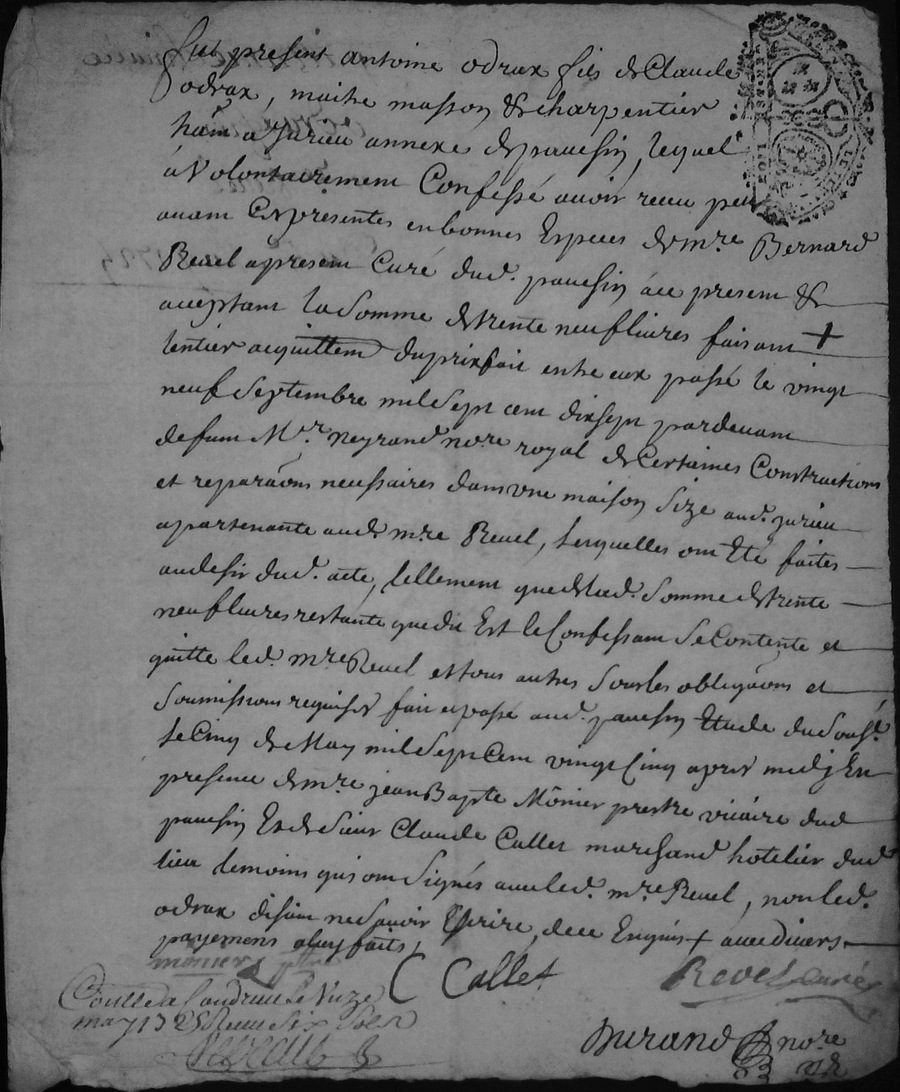 fut present antoine odrax fils de Claude
odrax, maitre masson & charpentier
hãnt a Jurieu annexe de pavesin, lequel
a Volontairement Confessé avoir receu peu
avant Ces presentes en bonnes Especes de mre Bernard
Revel a present Curé dud. pavesin ace present &
aceptant la Somme de trente neuf livres faisant +
lentier acquittem du prixfait entre eux passé le vingt
neuf Septembre mil Sept cent dixsept pardevant
defunt Mr. neyrand nore royal de Certaines Constructions
et reparãons necessaires dans une maison Size aud. jurieu
apartenante aud. mre Revel, lesquelles ont Eté faites
audesir dud. acte, tellement que de lad. Somme de trente
neuf livres restante que dit Est le Confessant Se Contente et
quitte led. mre Revel et tous autres Sous les obligãons et
Soumissions requises fait et passé aud. pavesin Etude du Sousé.
le Cinq de May mil Sept Cent vingt Cinq apres midy En
presence de mre jean Bapte Mônier prestre vicaire dud
pavesin Et de Sieur Claude Callet marchand hotelier dud
lieu temoins qui ont Signés avec led. mre Revel, non led.
odrax disant ne Savoir Escrire, de ce Enquis + avec divers
payemens a luy faits
mônier ptre
C Callet
Revel curé
may 1725 Receu Six Sols
Durand nore